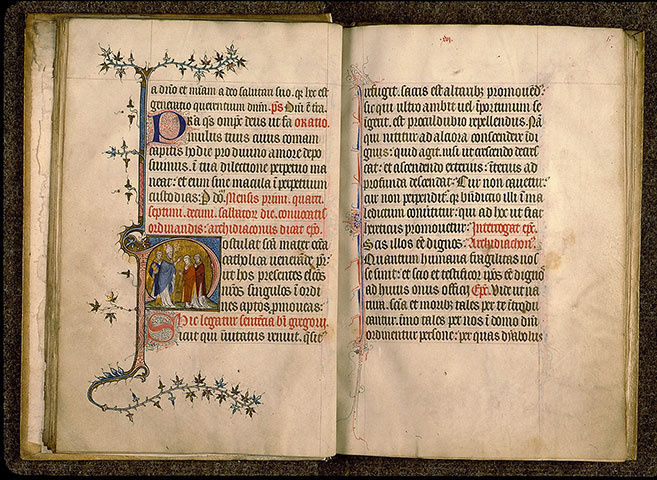 a dño et misam a deo salutari suo. q̃ hec est
generatio querentium dnm̃. p̃s Dñi ẽ t̃ra.
Pra q̃s omp̃s deus ut fa oratio.
mulus tuus cuius comam
capitis hodie pro diuino amore depo
suimus. ĩ tua dilectione perpetuo ma
neat: et eum sine macula ĩ perpetuum
custodias. P. dõ. Mensis primi. quarti.
septimi. decimi. sabbator̃ die. conuocatis
ordinandis: archidiaconus dicat ep̃o.
Postulat sc̃a mater ecc̃a
catholica uenerãde pr̃:
ut hos presentes elec̃os
nr̃os singulos ĩ ordi
nes aptos p̃moueas:
Hic legatur sentẽcia bĩ gregorij.
Sicut qui inuitatus renuit. q̃sit⁹
xvj.
refugit. sacris est altaribz̃ promouẽdꝰ.
sic qui ultro ambit uel ĩportunum se
igerit. est proculdubio repellendus. Nã
qui nititur ad alciora conscender̃ ĩdi
gnus: quid agit. nisi ut crescendo decres
cat: et ascendendo exterius: ĩterius ad
profunda descendat. Cur non cauetur
cur non perpendit. q̃ bñdictio illi ĩ ma
ledictum conũtitur: qui ad hec ut fiat
hereticus promouetur: Interrogat ep̃c.
Scis illos eẽ dignos: Archidiachon⁹.
Quantum humana fragilitas nos
se sinit: et scio et testificor ip̃os eẽ dignos
ad huius onus officij Ep̃c. Vide ut na
tura. sc̃ia et moribz̃ tales per te ĩtrodu
cantur. ĩmo tales per nos ĩ domo dñi
ordinentur persone: per quas dyabolus